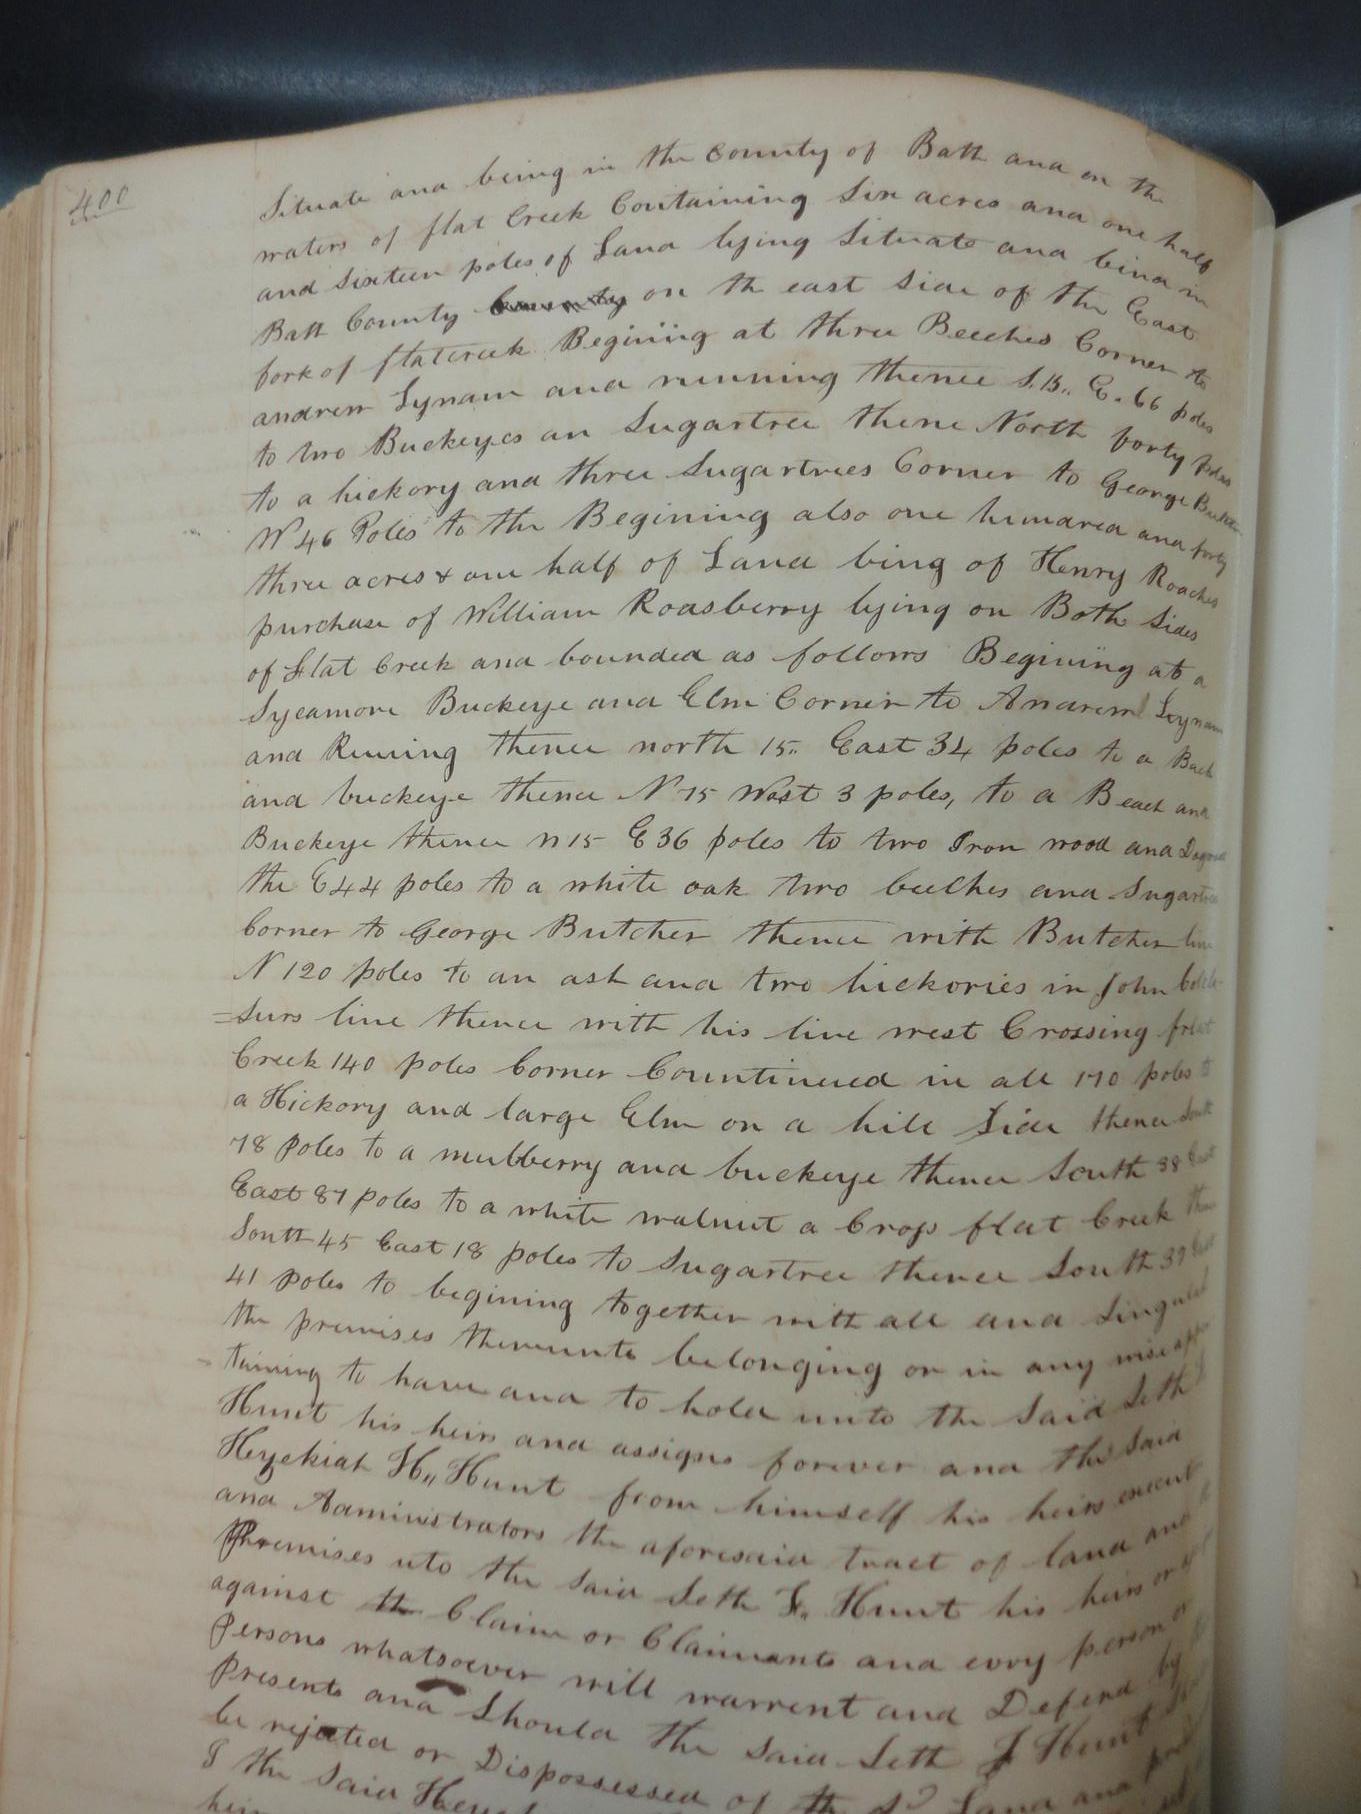 400
Situate and being in the County of Bath and on the
waters of flat Creek Containing Six acres and one half
and Sixteen poles of Land lying Situate and bind in
Bath County County on th east Side of the East
fork of flatcreek Begining at three Beeches Corner to
andrew Lynam and running thence S. 13,, E. 66 poles
to two Buckeyes an Sugartree thene North forty poles
to a hickory and three Sugartrees Corner to George Butcher
W 46 Poles to the Begining also one hundred and forty
three acres & one half of Land bing of Henry Roaches
purchase of William Roasberry lying on Both Sides
of flat Creek and bounded as follows Begining at a
Sycamore Buckeye and Elm Corner to Andrew Lynam
and Runing thence north 15,, East 34 poles to a
and buckeye thence N 75 West 3 poles, to a Beach and
Buckeye thence n 15 E 36 poles to two Iron wood and Dogwood
the E 44 poles to a white oak two beeches and Sugartree
Corner to George Butcher thence with Butcher line
N 120 poles to an ash and two hickories in John
=surs line thence with his line west Crossing
Creek 140 poles Corner Countinued in all 170 poles
a Hickory and large Elm on a hill Side thence South
78 poles to a mulberry and buckeye thence South 38 East
East 87 poles to a white walnut a Crops flat Creek
South 45 East 18 poles to Sugartree thence South 39 East
41 poles to begining together with all and Singular
the premises thereunto belonging or in any wise
taining to have and to hold unto the Said Seth
Hunt his heirs and assigns forever and the Said
Heyekiah H,, Hunt from himself his heirs
and Administrators the aforesaid tract of land and
Premises uto the Said Seth F,, Hunt his heirs or
against the Claim or Claimants and evry person or
Persons whatsoever will warrent and Defend by
presents and Should the Said Seth F Hunt
be rejected or Dispossessed of the Sd Land and
I the Said